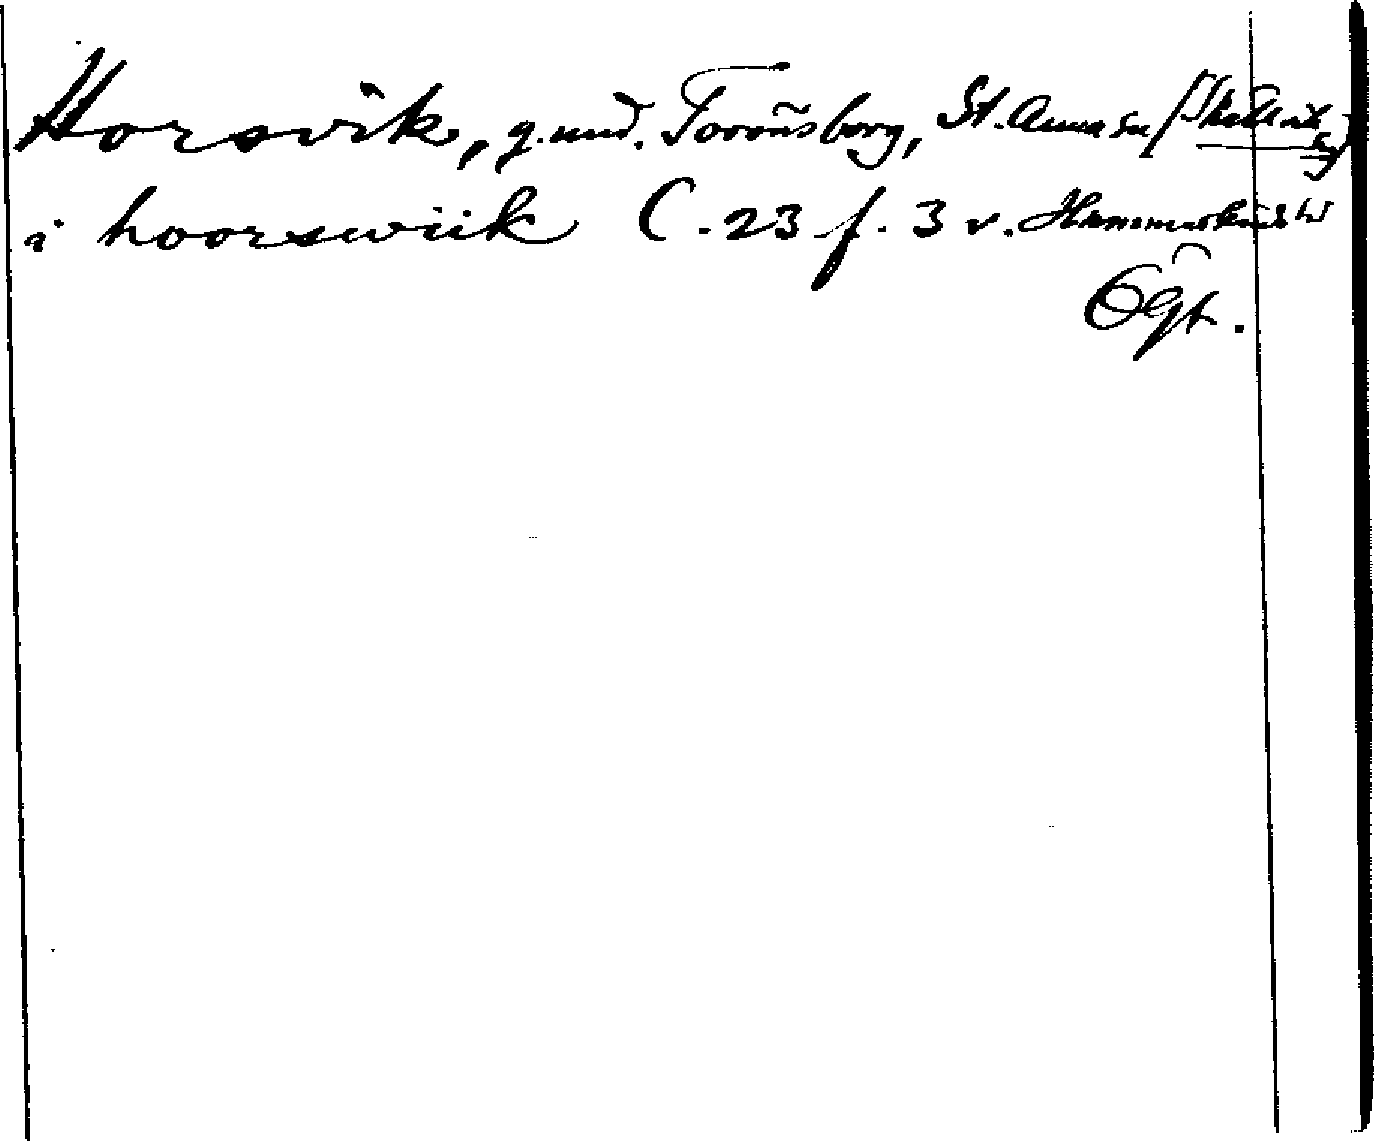 Horsvik, g. und. Torönsborg, St. Anna sn (Skällvik)
i hoorswiik C. 23 f. 3 v. Hammarkinds hd
Ögt.